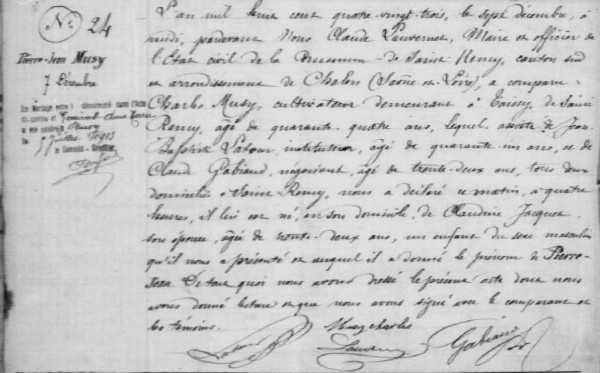 N° 24
Pierre-Jean Musy
7 Décembre
L'an mil huit cent quatre-vingt-trois, le sept décembre, à
midi, pardevant Nous Claude Lauvernet, Maire et officier de
l'Etat civil de la Commune de Saint Remy, canton sud
et arrondissement de Chalon (Saône et Loire), a comparu
Charles Musy, cultivateur demeurant à Taisey de Saint
Remy, âgé de quarante-quatre ans, lequel, assisté de Jean
Baptiste Latour, instituteur, âgé de quarante-un ans, et de
Claude Gabiaud, négociant, âgé de trente-deux ans, tous deux
domiciliés à Saint Remy, nous a déclaré ce matin, à quatre
heures, il lui est né, en son domicile, de Claudine Jacques
son épouse, âgée de trente-deux ans, un enfant du sexe masculin
qu'il nous a présenté et auquel il a donné le prénom de Pierre-
Jean. De tout quoi nous avons dressé le présent acte dont nous
avons donné lecture et que nous avons signé avec le comparant et
les témoins.
Musy Charles
Latour Gabiaud